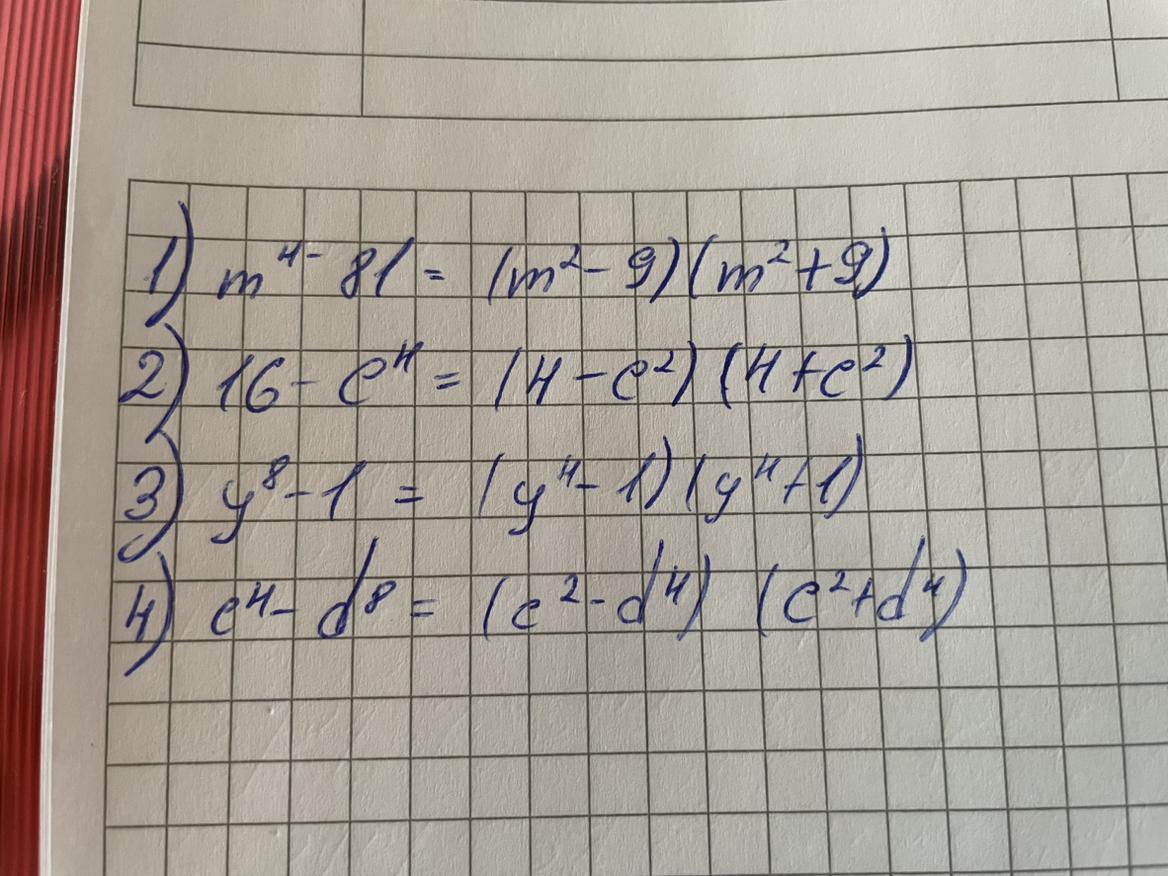 1) m⁴ - 81 = (m² - 9)(m² + 9)
2) 16 - c⁴ = (4 - c²) (4 + c²)
3) y⁸ - 1 = (y⁴ - 1)(y⁴ + 1)
4) c⁴ - d⁸ = (c² - d⁴) (c² + d⁴)